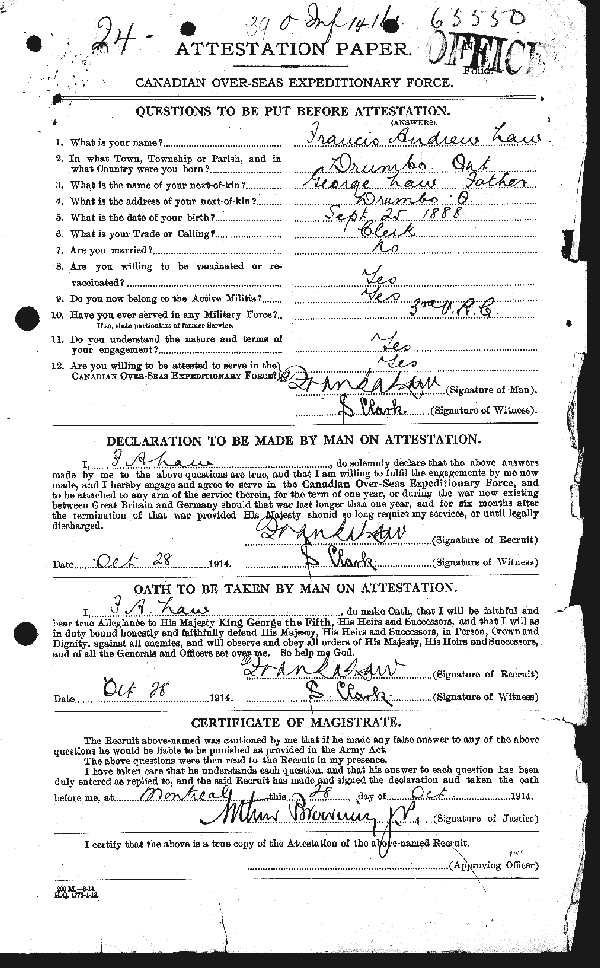 24- 65550
OFFICE
Folio.
ATTESTATION PAPER.
CANADIAN OVER-SEAS EXPEDITIONARY FORCE.
QUESTIONS TO BE PUT BEFORE ATTESTATION.
(ANSWERS).
1. What is your name? Francis Andrew Law
2. In what Town, Township or Parish, and in
what Country were you born? Drumbo Ont
3. What is the name of your next-of-kin? George Law Father
4. What is the address of your next-of-kin? Drumbo O
5. What is the date of your birth? Sept 25 1888
6. What is your Trade or Calling? Clerk
7. Are you married? no
8. Are you willing to be vaccinated or re-
vaccinated? Yes
9. Do you now belong to the Active Militia? Yes
10. Have you ever served in any Military Force? 3rd V.R.C
If so, state particulars of former Service.
11. Do you understand the nature and terms of
your engagement? Yes
12. Are you willing to be attested to serve in the Yes
CANADIAN OVER-SEAS EXPEDITIONARY FORCE?
Frank A Law (Signature of Man).
S Clark (Signature of Witness).
DECLARATION TO BE MADE BY MAN ON ATTESTATION.
I, F A Law, do solemnly declare that the above answers
made by me to the above questions are true, and that I am willing to fulfil the engagements by me now
made, and I hereby engage and agree to serve in the Canadian Over-Seas Expeditionary Force, and
to be attached to any arm of the service therein, for the term of one year, or during the war now existing
between Great Britain and Germany should that war last longer than one year, and for six months after
the termination of that war provided His Majesty should so long require my services, or until legally
discharged.
Frank A Law (Signature of Recruit)
Date Oct 28 1914. S Clark (Signature of Witness)
OATH TO BE TAKEN BY MAN ON ATTESTATION.
I, F A Law, do make Oath, that I will be faithful and
bear true Allegiance to His Majesty King George the Fifth, His Heirs and Successors, and that I will as
in duty bound honestly and faithfully defend His Majesty, His Heirs and Successors, in Person, Crown and
Dignity, against all enemies, and will observe and obey all orders of His Majesty, His Heirs and Successors,
and of all the Generals and Officers set over me. So help me God.
Frank A Law (Signature of Recruit)
Date Oct 28 1914. S Clark (Signature of Witness)
CERTIFICATE OF MAGISTRATE.
The Recruit above-named was cautioned by me that if he made any false answer to any of the above
questions he would be liable to be punished as provided in the Army Act.
The above questions were then read to the Recruit in my presence.
I have taken care that he understands each question, and that his answer to each question has been
duly entered as replied to, and the said Recruit has made and signed the declaration and taken the oath
before me, at Montreal this 28 day of Oct. 1914.
Arthur Browning J.P. (Signature of Justice)
I certify that the above is a true copy of the Attestation of the above-named Recruit.
(Approving Officer)
200 M.-8-14